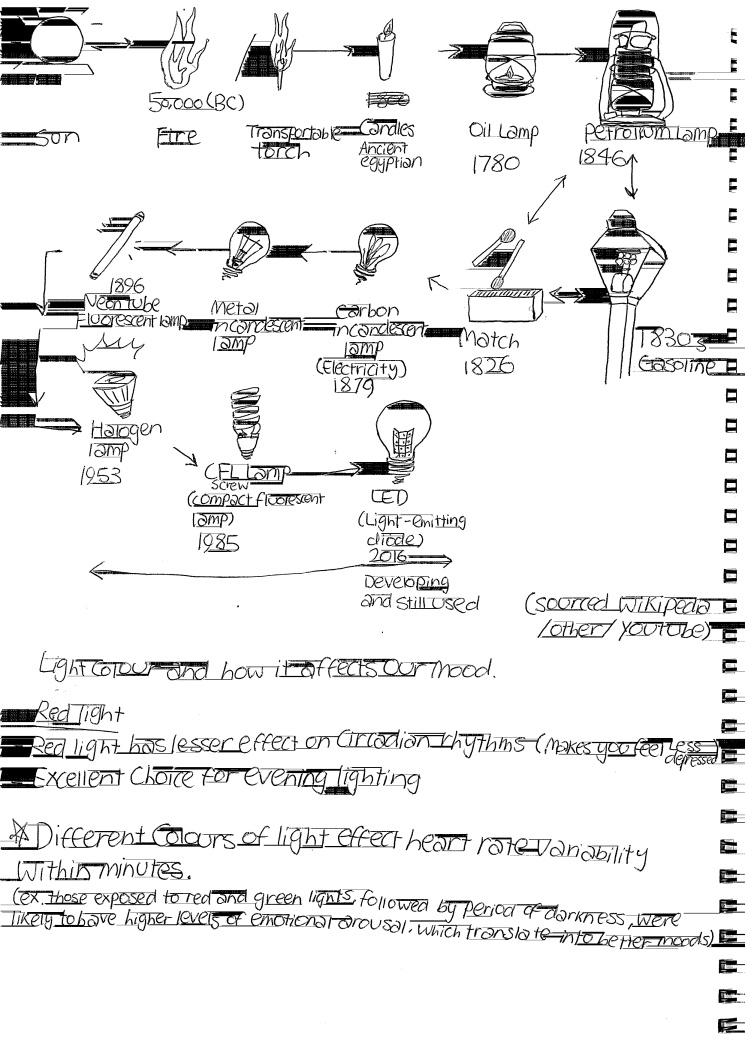 50,000 (BC)
Sun
Fire
Transportable
torch
Candles
Ancient
egyptian
Oil Lamp
1780
Petrolium Lamp
1846
1896
Neon tube
Fluorescent lamp
Metal
incandescent
lamp
Carbon
incandescent
lamp
(Electricity)
1879
Match
1826
1830s
Gasoline
Halogen
lamp
1953
CFL Lamp
screw
(compact fluorescent
lamp)
1985
LED
(Light-emitting
diode)
2016
Developing
and still used
(sourced Wikipedia
/other/ YOUTUBE)
Light Colour and how it affects Our Mood.
Red light
Red light has lesser effect on Circadian rhythms (Makes you feel less
depressed)
Excellent Choice for evening lighting
Different Colours of light effect heart rate variability
Within minutes.
(ex. those exposed to red and green lights, followed by period of darkness, were
likely to have higher levels of emotional arousal, which translate into better moods)